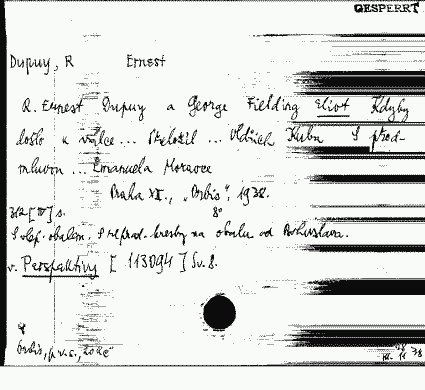 GESPERRT
Dupuy, R Ernest
R. Ernest Dupuy a George Fielding Eliot Kdyby
došlo k válce ... Přeložil ... Oldřich Kuba S před-
mluvou ... Emanuela Moravce
Praha XII., „Orbis“, 1938.
312 [III] s. 8°
S vlep. obálkou. S reprod. kresby na obálce od Bohuslava.
v. Perspektivy [ 113094 ] Sv. 8.
Orbis, p.v.s.,
11 38